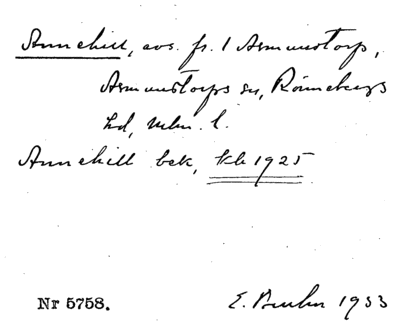 Annehill, avs. fr. 1 Asmundtorp,
Asmundtorps sn, Rönnebergs
hd, Mlm. l.
Annehill bek, kb 1925
Nr 5758. E. Bruhn 1933